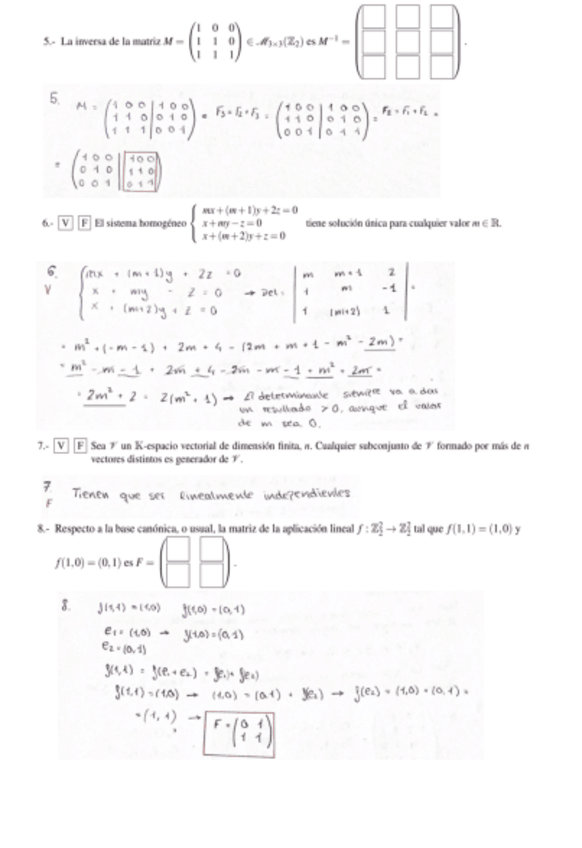 5.- La inversa de la matriz M = (1 0 0 / 1 1 0 / 1 1 1) ∈ ℳ₃ₓ₃(ℤ₂) es M⁻¹ = ( ).
5. M = (1 0 0 | 1 0 0 / 1 1 0 | 0 1 0 / 1 1 1 | 0 0 1) = F₃=F₂+F₃ = (1 0 0 | 1 0 0 / 1 1 0 | 0 1 0 / 0 0 1 | 0 1 1) = F₂=F₁+F₂ =
= (1 0 0 | 1 0 0 / 0 1 0 | 1 1 0 / 0 0 1 | 0 1 1)
6.- V F El sistema homogéneo { mx+(m+1)y+2z=0 / x+my−z=0 / x+(m+2)y+z=0 tiene solución única para cualquier valor m ∈ ℝ.
6.
V
{ mx + (m+1)y + 2z = 0 / x + my - z = 0 / x + (m+2)y + z = 0 → Det = | m m+1 2 / 1 m -1 / 1 (m+2) 1 | =
= m² + (-m-1) + 2m + 4 - (2m + m + 1 - m² - 2m) =
= m² - m - 1 + 2m + 4 - 2m - m - 1 + m² + 2m =
= 2m² + 2 = 2(m² + 1) → El determinante siempre va a dar
un resultado > 0, aunque el valor
de m sea 0.
7.- V F Sea 𝒱 un K-espacio vectorial de dimensión finita, n. Cualquier subconjunto de 𝒱 formado por más de n
vectores distintos es generador de 𝒱.
7
F
Tienen que ser linealmente independientes
8.- Respecto a la base canónica, o usual, la matriz de la aplicación lineal f : ℤ₂² → ℤ₂² tal que f(1,1) = (1,0) y
f(1,0) = (0,1) es F = ( ).
8. f(1,1) = (1,0) f(1,0) = (0,1)
e₁ = (1,0) → f(1,0) = (0,1)
e₂ = (0,1)
f(1,1) = f(e₁+e₂) = f(e₁)+f(e₂)
f(1,1) = (1,0) → (1,0) = (0,1) + f(e₂) → f(e₂) = (1,0) + (0,1) =
= (1,1) → F = (0 1 / 1 1)